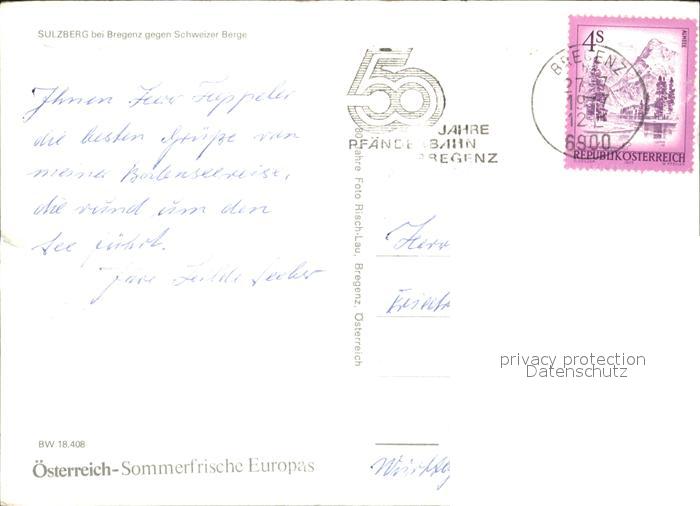 SULZBERG bei Bregenz gegen Schweizer Berge
Ihnen Herr Feppeler
die besten Grüße von
meiner Bodenseereise,
die rund um den
See führt.
Ihre Hilde Seeber
BW 18.408
Österreich-Sommerfrische Europas
80 Jahre Foto Risch-Lau, Bregenz, Österreich
50
JAHRE
PFÄNDERBAHN
BREGENZ
BREGENZ
27
19
12
6900
4S
ALMSEE
REPUBLIK ÖSTERREICH
Herr
Friedr
privacy protection
Datenschutz
Württ